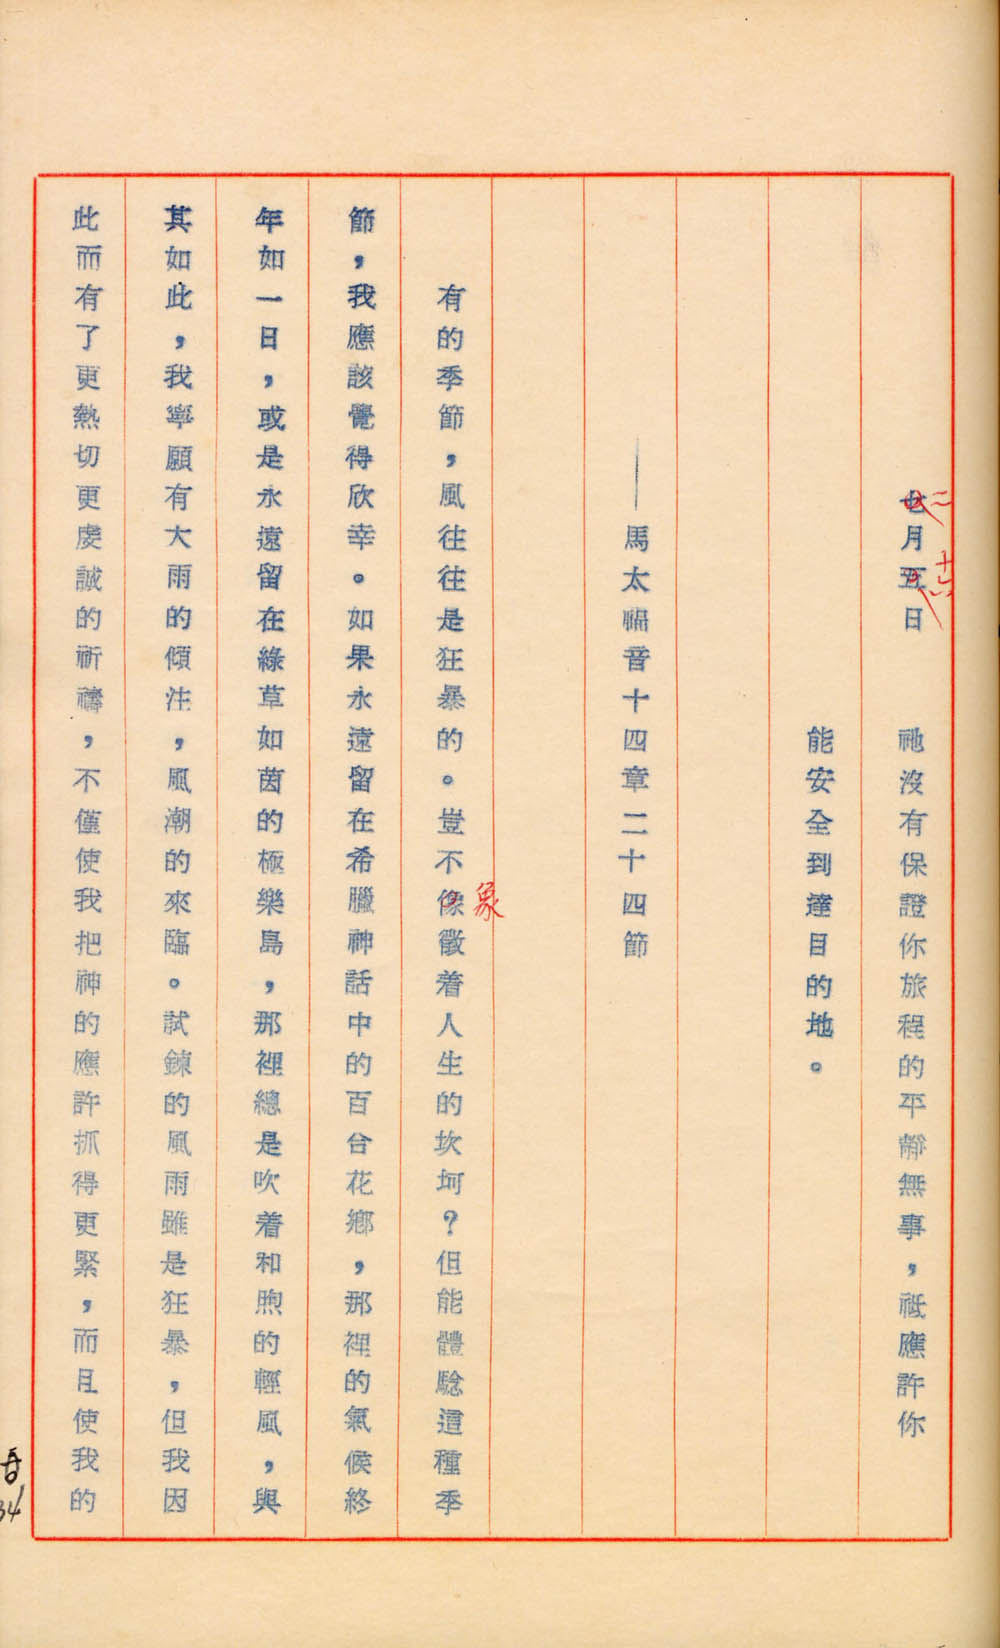 七月五日　祂沒有保證你旅程的平靜無事，祗應許你
二
十六
能安全到達目的地。
——馬太福音十四章二十四節
有的季節，風往往是狂暴的。豈不像徵着人生的坎坷？但能體驗這種季
象
節，我應該覺得欣幸。如果永遠留在希臘神話中的百合花鄉，那裡的氣候終
年如一日，或是永遠留在綠草如茵的極樂島，那裡總是吹着和煦的輕風，與
其如此，我寧願有大雨的傾注，風潮的來臨。試鍊的風雨雖是狂暴，但我因
此而有了更熱切更虔誠的祈禱，不僅使我把神的應許抓得更緊，而且使我的